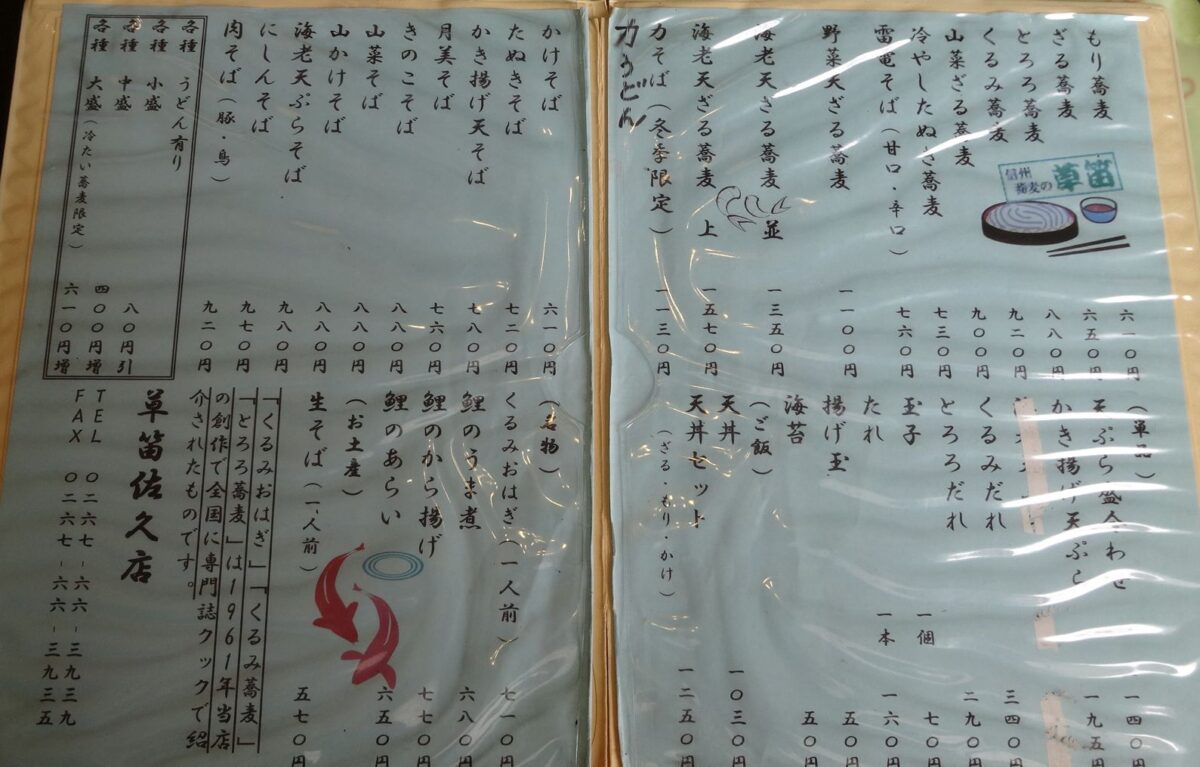 もり蕎麦 六一〇円
ざる蕎麦 六五〇円
とろろ蕎麦 八八〇円
くるみ蕎麦 九二〇円
山菜ざる蕎麦 九〇〇円
冷やしたぬき蕎麦 七三〇円
雷電そば（甘口・辛口） 七六〇円
野菜天ざる蕎麦 一一〇〇円
海老天ざる蕎麦 並 一三五〇円
海老天ざる蕎麦 上 一五七〇円
力そば（冬季限定） 一一三〇円
力うどん
信州
蕎麦の
草笛
（単品）
天ぷら盛合わせ 一四〇円
かき揚げ天ぷら 一九五円
くるみだれ 三四〇円
とろろだれ 二九〇円
玉子 一個 七〇円
たれ 一本 一六〇円
揚げ玉 五〇円
海苔 五〇円
（ご飯）
天丼 一〇三〇円
天丼セット（ざる・もり・かけ） 一二五〇円
かけそば 六一〇円
たぬきそば 七二〇円
かき揚げ天そば 七八〇円
月美そば 七六〇円
きのこそば 八八〇円
山菜そば 八八〇円
山かけそば 八八〇円
海老天ぷらそば 九八〇円
にしんそば 九七〇円
肉そば（豚・鳥） 九二〇円
各種 うどん有り
各種 小盛 八〇円引
各種 中盛 四〇〇円増
各種 大盛（冷たい蕎麦限定） 六一〇円増
（名物）
くるみおはぎ（一人前） 七一〇円
鯉のうま煮 六八〇円
鯉のから揚げ 七七〇円
鯉のあらい 六五〇円
（お土産）
生そば（一人前） 五七〇円
「くるみおはぎ」「くるみ蕎麦」
「とろろ蕎麦」は1961年当店
の創作で全国に専門誌クックで紹
介されたものです。
草笛佐久店
TEL 〇二六七-六六-三九三九
FAX 〇二六七-六六-三九三五